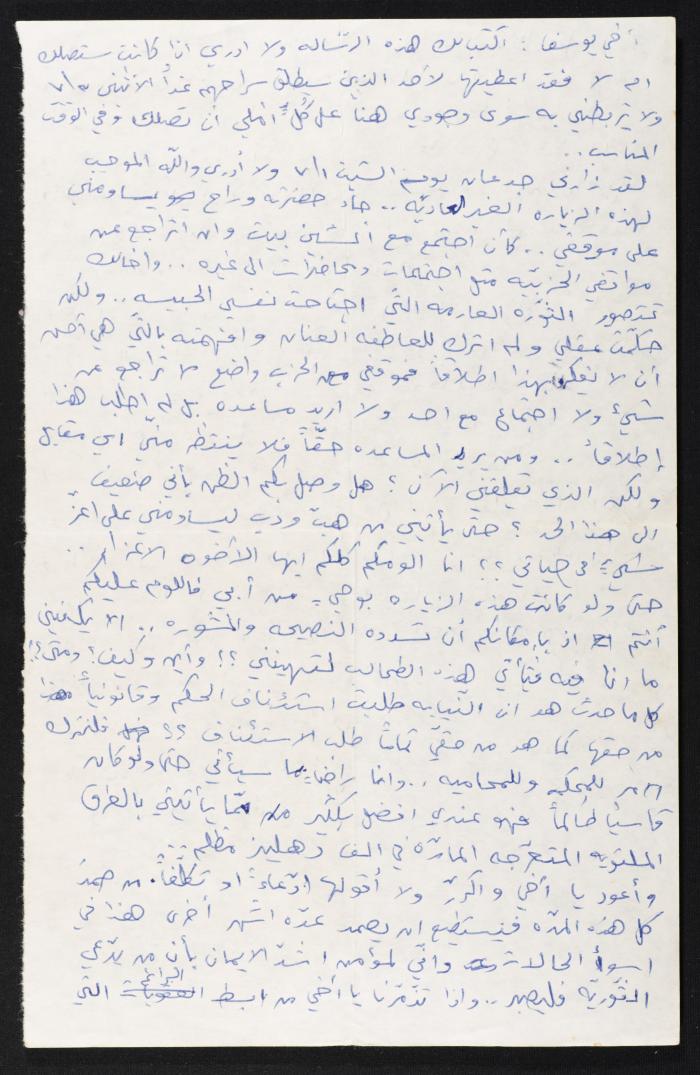 أخي يوسف : اكتب لك هذه الرساله ولا ادري اذا كانت ستصلك
ام لا فقد اعطيتها لأحد الذين سيطلق سراحهم غداً الاثنين
ولا يربطني به سوى وجودي هنا على كُلٍّ املي ان تصلك وفي الوقت
المناسب ..
لقد زارني جدعان يوم السبت ٧/١ ولا أدري والله الموجب
لهذه الزياره الغير لعاديّه .. جاء حضرته وراح يساومني
على موقفي .. كأن اجتمع مع بيت وان اتراجع عن
مواقفي الحزبيّه مثل اجتماعات ومحاضرات الى غيره .. واخالك
تتصور الثوره العارمه التي اجتاحت نفسي الحبيسه .. ولكن
حكّمت عقلي ولم اترك للعاطفه العنان وافهمته بالتي هي أحسن
أن لا يفكر بهذا اطلاقاً فموقفي مع الحزب واضح لا تراجع عن
شيئ ولا اجتماع مع احد ولا اريد مساعده بل لم اطلب هذا
إطلاقاً .. ومن يريد المساعده حقّاً فلا ينتظر منّي اي مقابل
ولكن الذي يقلقني الآن ؟ هل وصل بكم الظن بأني ضعيف
الى هذا الحد ؟ حتى يأتيني من هبّ ودب ليساومني على اعزّ
شيئ في حياتي ؟؟ انا الومكم كلكم ايها الأخوه الاعزاء ..
حتى ولو كانت هذه الزياره بوحي من أبي فاللوم عليكم
أنتم اذ بإمكانكم أن تسدوه النصيحه والمشوره .. الا يكفيني
ما انا فيه فتأتي هذه الطحالب لتهينني ؟؟ وأين وكيف ؟ ومتى ؟!
كل ما حدث هو ان النيابه طلبت استئناف الحكم وقانونياً هذا
من حقها كما هو من حقّي تماماً طلب الاستئناف ؟؟ فلنترك
الامر للمحكمه وللمحاميه .. وانا راضٍ بما سيأتي حتى ولو كان
قاسياً ظالماً فهو عندي افضل بكثير ممّا يأتيني بالطرق
الملتويه المتعرّجه المارّه في الف دهليز مظلم ..
وأعود يا أخي واكرر ولا أقولها ادّعاءً او تكلّفاً . من صمد
كل هذه المدّه فيستطيع ان يصمد عدّه اشهر أخرى هذا في
اسوأ الحالات وانّي لمؤمن اشدّ الايمان بأن من يدّعي
الثوريّه فليصبر .. واذا تذمّرنا يا أخي من ابسط التي